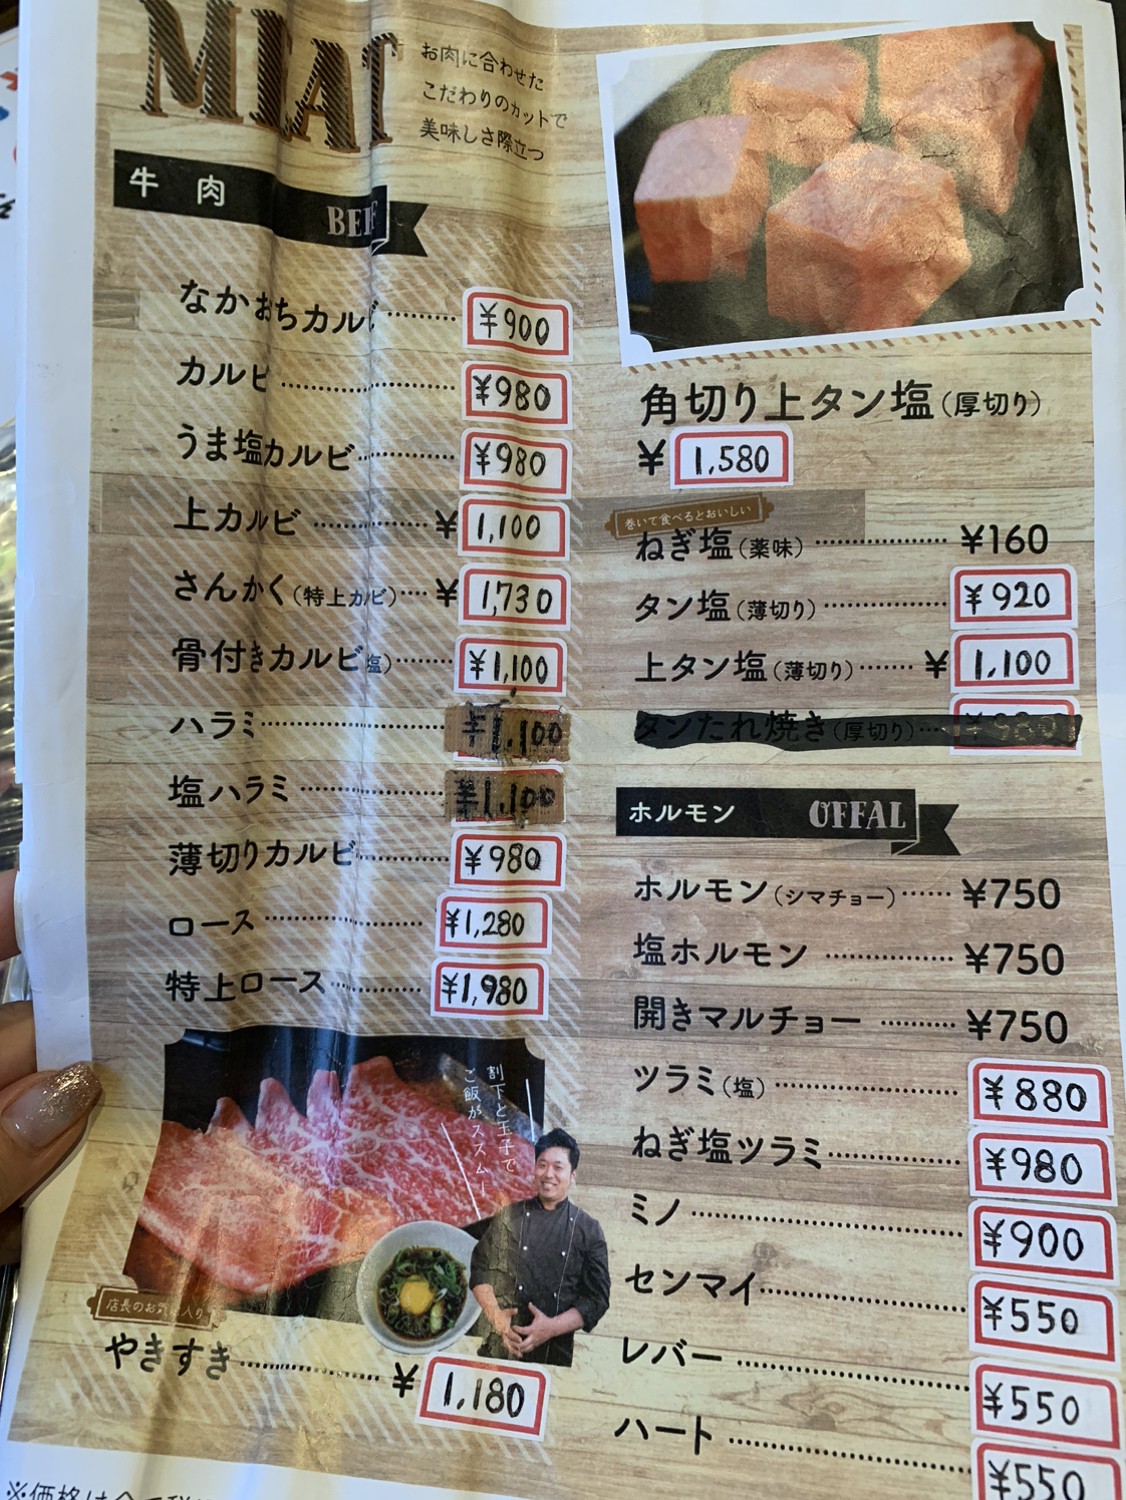 MEAT
お肉に合わせた
こだわりのカットで
美味しさ際立つ
牛肉 BEEF
なかおちカルビ ¥900
カルビ ¥980
うま塩カルビ ¥980
上カルビ ¥1,100
さんかく(特上カルビ) ¥1,730
骨付きカルビ(塩) ¥1,100
ハラミ ¥1,100
塩ハラミ ¥1,100
薄切りカルビ ¥980
ロース ¥1,280
特上ロース ¥1,980
割下と玉子で
ご飯がススム!
店長のお気に入り
やきすき ¥1,180
角切り上タン塩(厚切り)
¥1,580
巻いて食べるとおいしい
ねぎ塩(薬味) ¥160
タン塩(薄切り) ¥920
上タン塩(薄切り) ¥1,100
タンたれ焼き(厚切り) ¥980
ホルモン OFFAL
ホルモン(シマチョー) ¥750
塩ホルモン ¥750
開きマルチョー ¥750
ツラミ(塩) ¥880
ねぎ塩ツラミ ¥980
ミノ ¥900
センマイ ¥550
レバー ¥550
ハート ¥550
※価格は全て税